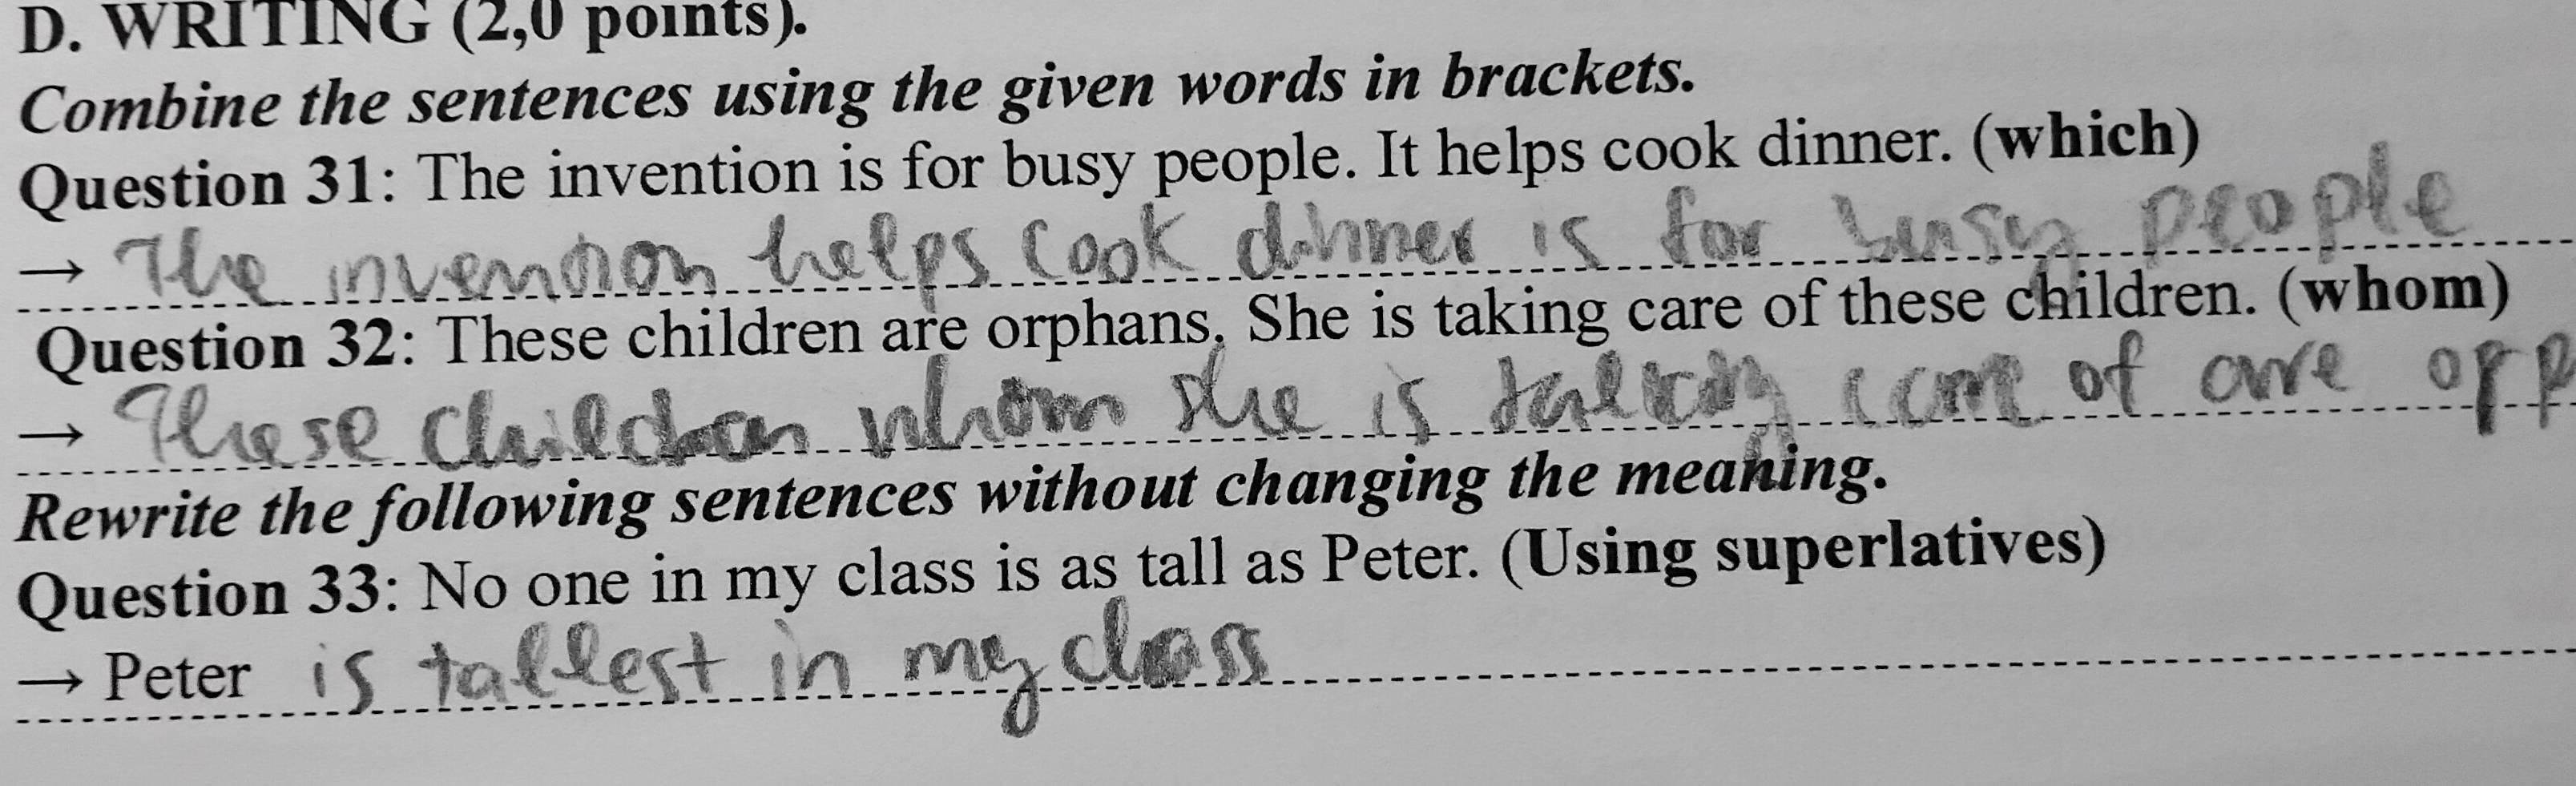 D. WRITING (2,0 points).
Combine the sentences using the given words in brackets.
Question 31: The invention is for busy people. It helps cook dinner. (which)
→ The invention helps cook dinner is for busy people
Question 32: These children are orphans. She is taking care of these children. (whom)
→ These children whom she is taking care of are opp
Rewrite the following sentences without changing the meaning.
Question 33: No one in my class is as tall as Peter. (Using superlatives)
→ Peter is tallest in my class